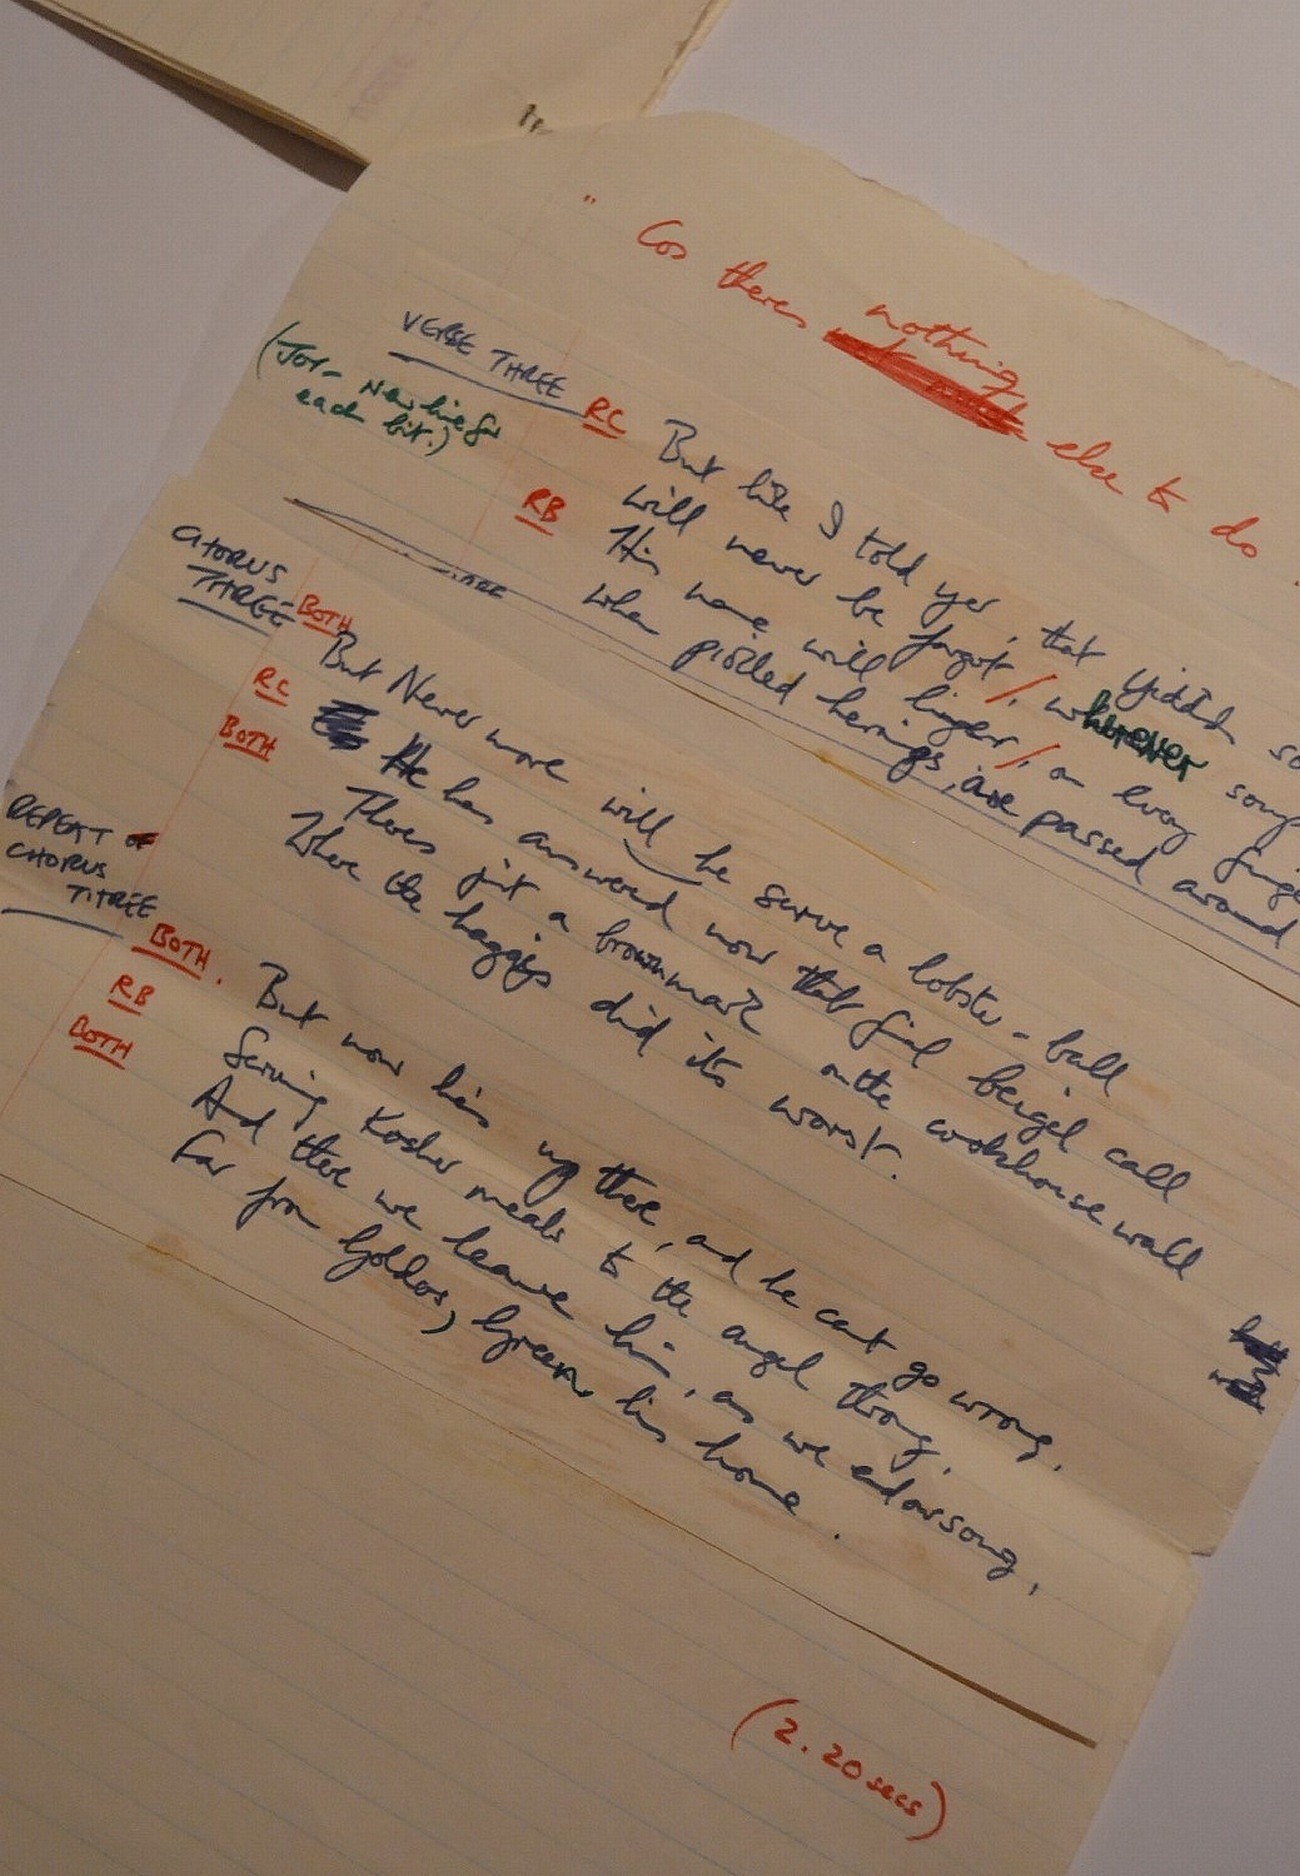 " Cos theres nothing else to do.
VERSE THREE
(Joy - New line for
each bit.)
RC But like I told yer, that Yiddish so
will never be forgot /, wherever song
RB His name will linger /, on every finge
when pickled herrings, are passed around
CHORUS
THREE
BOTH But Never more will he serve a lobster-ball
RC He has answered now that final beigel call
BOTH Theres just a brown mark on the cookhouse wall
Where the haggis did its worst.
REPEAT OF
CHORUS
THREE
BOTH. But now hes up there, and he cant go wrong.
RB Serving Kosher meals to the angel throng.
BOTH And there we leave him, as we end our song,
Far from Golders, Green his home.
(2.20 secs)